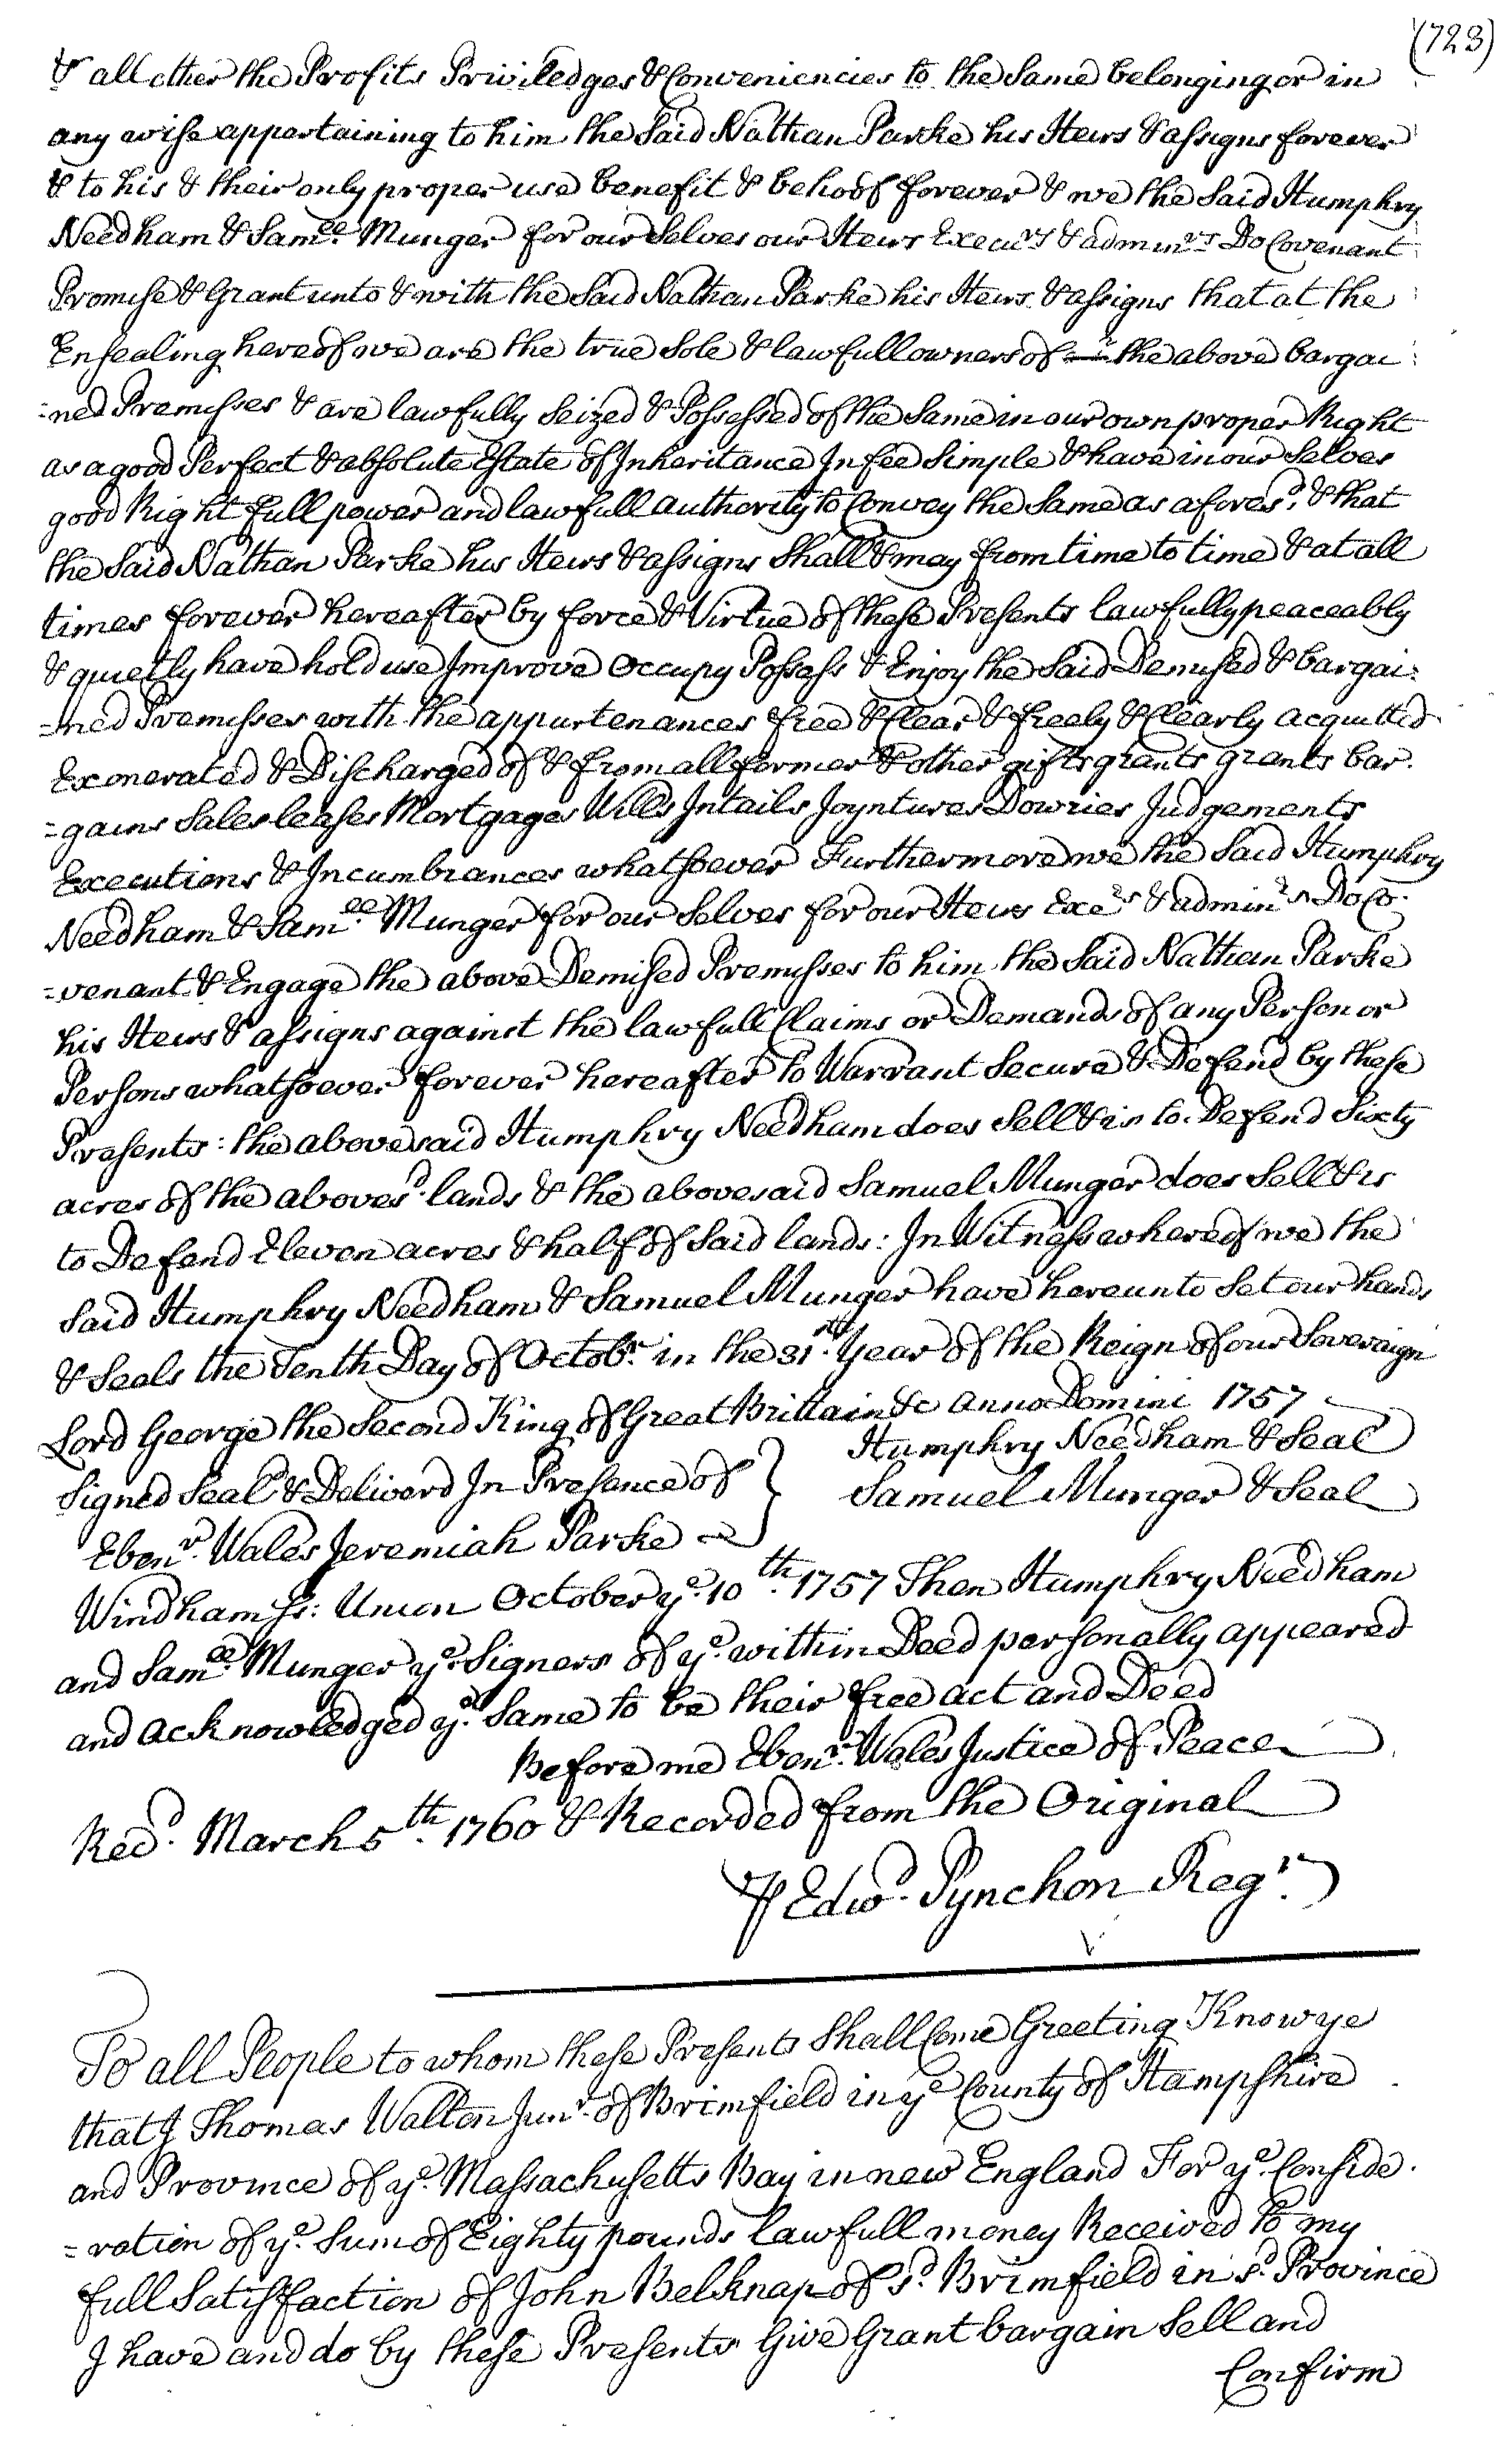 (723)
& all other the Profits Priviledges & Conveniencies to the Same belonging or in
any wise appertaining to him the Said Nathan Parke his Heirs & assigns forever
& to his & their only proper use benefit & behoof forever & we the Said Humphry
Needham & Sam.ll Munger for our Selves our Heirs Execurs & adminrs Do Covenant
Promise & Grant unto & with the Said Nathan Parke his Heirs & assigns that at the
Ensealing hereof we are the true Sole & lawfull owners of the above bargai
=ned Premisses & are lawfully Seized & Possessed of the Same in our own proper Right
as a good Perfect & absolute Estate of Inheritance In fee Simple & have in our Selves
good Right full power and lawfull authority to Convey the Same as afores.d & that
the Said Nathan Parke his Heirs & assigns Shall & may from time to time & at all
times forever hereafter by force & Virtue of these Presents lawfully peaceably
& quietly have hold use Improve Occupy Possess & Enjoy the Said Demised & bargai=
=ned Premisses with the appurtenances free & Clear & freely & Clearly acquitted
Exonerated & Discharged of & from all former & other gifts grants grants bar.
=gains Sales leases Mortgages Wills Intails Joyntures Dowries Judgements
Executions & Incumbrances whatsoever Furthermore we the Said Humphry
Needham & Sam.ll Munger for our Selves for our Heirs Exe.rs & admin.rs Do Co.
=venant & Engage the above Demised Premisses to him the Said Nathan Parke
his Heirs & assigns against the lawfull Claims or Demands of any Person or
Persons whatsoever forever hereafter to Warrant Secure & Defend by these
Presents: the abovesaid Humphry Needham does Sell & is to Defend Sixty
acres of the aboves.d lands & the abovesaid Samuel Munger does Sell & is
to Defend Eleven acres & half of Said lands: In Witness whereof we the
Said Humphry Needham & Samuel Munger have hereunto Set our hands
& Seals the Tenth Day of Octob.r in the 31.st Year of the Reign of our Soveraign
Lord George the Second King of Great Brittain &c Anno Domini 1757
Humphry Needham & Seal
Signed Seal.d & Deliverd In Presence of } Samuel Munger & Seal
Eben.r Wales Jeremiah Parke
Windham ss: Union October y.e 10.th 1757 Then Humphry Needham
and Sam.ll Munger y.e Signers of y.e within Deed personally appeared
and acknowledged y.e Same to be their free act and Deed
Before me Eben.r Wales Justice of Peace
Rec.d March 5.th 1760 & Recorded from the Original
⅌ Edw.d Pynchon Reg.r
To all People to whom these Presents Shall Come Greeting Know ye
that I Thomas Walton Jun.r of Brimfield in y.e County of Hampshire
and Province of y.e Massachusetts Bay in new England For y.e Conside.
=ration of y.e Sum of Eighty pounds lawfull money Received to my
full Satisfaction of John Belknap of s.d Brimfield in s.d Province
I have and do by these Presents Give Grant bargain Sell and
Confirm